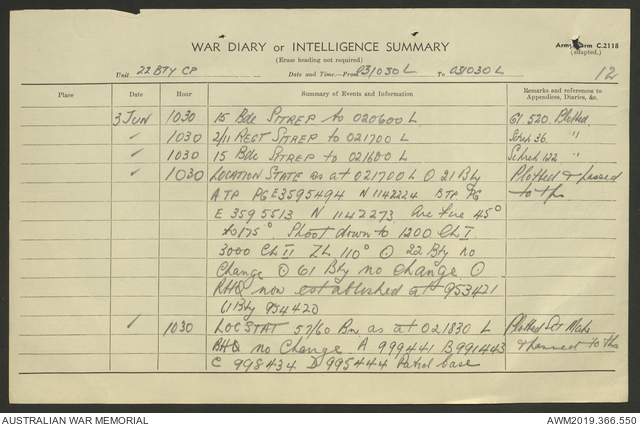 WAR DIARY or INTELLIGENCE SUMMARY
Army Form C.2118
(Erase heading not required)
(adapted.)
Unit 22 BTY CP Date and Time—From 031030 L To 031030 L
12
Place Date Hour Summary of Events and Information Remarks and references to Appendices, Diaries, &c.
3 JUN 1030 15 Bde SITREP to 020600 L 61 520 Plotted
" 1030 2/11 REGT SITREP to 021700 L Sched 36. "
" 1030 15 Bde SITREP to 021600 L Sched 122 "
" 1030 LOCATION STATE as at 021700 L O 21 Bty Plotted & passed
ATP PG E3595494 N 1142224 BTP PG to tps
E 3595513 N 1142273 Arc fire 45°
to 175° Shoot down to 1200 Ch I
3000 Ch II ZL 110° O 22 Bty no
Change O 61 Bty no change O
RHQ now established at 953421
61 Bty 954420
" 1030 LOCSTAT 57/60 Bn as at 021830 L Plotted Set Maps
BHQ no Change A 999441 B 991443 & passed to tps
C 998434 D 995444 Patrol base
AUSTRALIAN WAR MEMORIAL
AWM2019.366.550